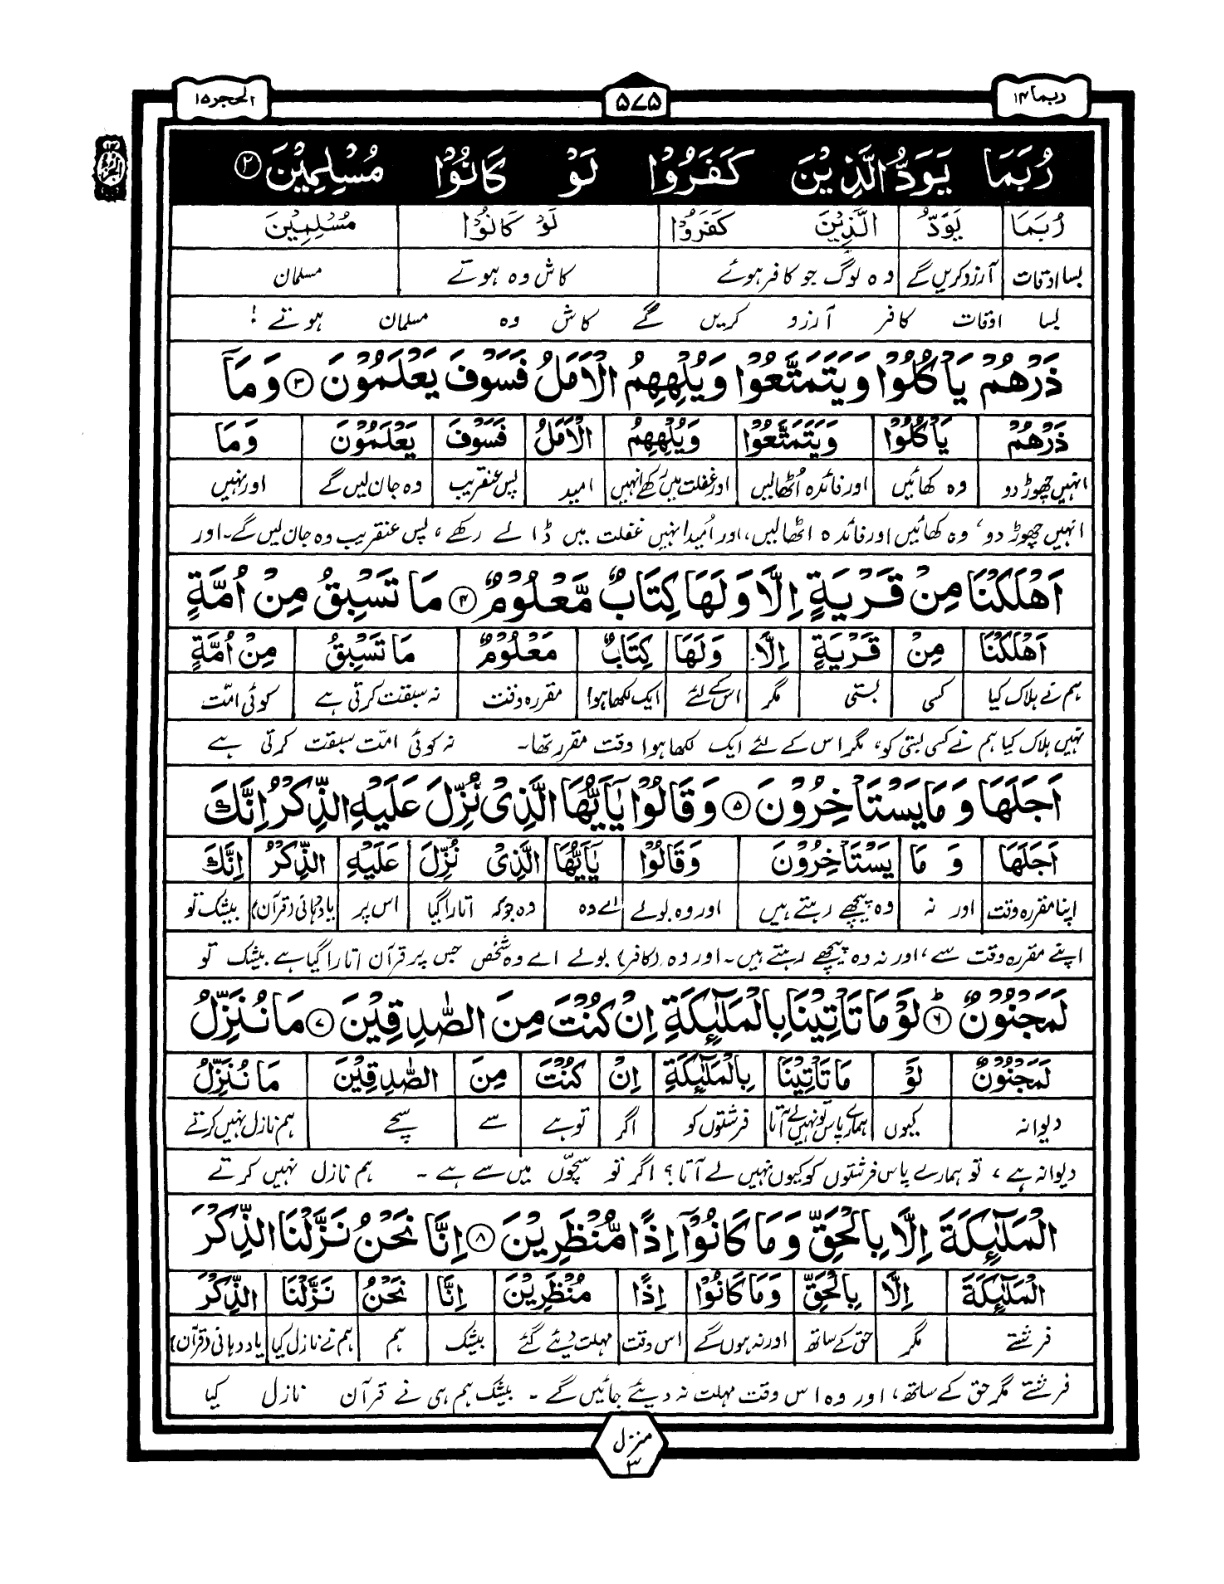 ربما ۱۴ ۵۷۵ الحجر ۱۵
رُبَمَا يَوَدُّ الَّذِيْنَ كَفَرُوْا لَوْ كَانُوْا مُسْلِمِيْنَ ②
رُبَمَا يَوَدُّ الَّذِيْنَ كَفَرُوْا لَوْ كَانُوْا مُسْلِمِيْنَ
بسا اوقات آرزو کریں گے وہ لوگ جو کافر ہوئے کاش وہ ہوتے مسلمان
بسا اوقات کافر آرزو کریں گے کاش وہ مسلمان ہوتے!
ذَرْهُمْ يَاْكُلُوْا وَيَتَمَتَّعُوْا وَيُلْهِهِمُ الْاَمَلُ فَسَوْفَ يَعْلَمُوْنَ ③ وَمَآ
ذَرْهُمْ يَاْكُلُوْا وَيَتَمَتَّعُوْا وَيُلْهِهِمُ الْاَمَلُ فَسَوْفَ يَعْلَمُوْنَ وَمَا
انہیں چھوڑ دو وہ کھائیں اور فائدہ اُٹھالیں اور غفلت میں رکھے انہیں امید پس عنقریب وہ جان لیں گے اور نہیں
انہیں چھوڑ دو، وہ کھائیں اور فائدہ اٹھالیں، اور اُمید انہیں غفلت میں ڈالے رکھے، پس عنقریب وہ جان لیں گے۔ اور
اَهْلَكْنَا مِنْ قَرْيَةٍ اِلَّا وَلَهَا كِتَابٌ مَّعْلُوْمٌ ④ مَا تَسْبِقُ مِنْ اُمَّةٍ
اَهْلَكْنَا مِنْ قَرْيَةٍ اِلَّا وَلَهَا كِتَابٌ مَعْلُوْمٌ مَا تَسْبِقُ مِنْ اُمَّةٍ
ہم نے ہلاک کیا کسی بستی مگر اس کے لئے ایک لکھا ہوا مقررہ وقت نہ سبقت کرتی ہے کوئی امّت
نہیں ہلاک کیا ہم نے کسی بستی کو، مگر اس کے لئے ایک لکھا ہوا وقت مقرر تھا۔ نہ کوئی امّت سبقت کرتی ہے
اَجَلَهَا وَمَا يَسْتَاْخِرُوْنَ ⑤ وَقَالُوْا يٰٓاَيُّهَا الَّذِىْ نُزِّلَ عَلَيْهِ الذِّكْرُ اِنَّكَ
اَجَلَهَا وَ مَا يَسْتَاْخِرُوْنَ وَقَالُوْا يٰٓاَيُّهَا الَّذِىْ نُزِّلَ عَلَيْهِ الذِّكْرُ اِنَّكَ
اپنا مقررہ وقت اور نہ وہ پیچھے رہتے ہیں اور وہ بولے اے وہ وہ جو کہ اتارا گیا اس پر یاد دہانی (قرآن) بیشک تو
اپنے مقررہ وقت سے، اور نہ وہ پیچھے رہتے ہیں۔ اور وہ (کافر) بولے اے وہ شخص جس پر قرآن اتارا گیا ہے بیشک تو
لَمَجْنُوْنٌ ⑥ لَوْ مَا تَاْتِيْنَا بِالْمَلٰٓئِكَةِ اِنْ كُنْتَ مِنَ الصّٰدِقِيْنَ ⑦ مَا نُنَزِّلُ
لَمَجْنُوْنٌ لَوْ مَا تَاْتِيْنَا بِالْمَلٰٓئِكَةِ اِنْ كُنْتَ مِنَ الصّٰدِقِيْنَ مَا نُنَزِّلُ
دیوانہ کیوں ہمارے پاس تو نہیں لے آتا فرشتوں کو اگر تو ہے سے سچے ہم نازل نہیں کرتے
دیوانہ ہے، تو ہمارے پاس فرشتوں کو کیوں نہیں لے آتا؟ اگر تو سچّوں میں سے ہے۔ ہم نازل نہیں کرتے
الْمَلٰٓئِكَةَ اِلَّا بِالْحَقِّ وَمَا كَانُوْٓا اِذًا مُّنْظَرِيْنَ ⑧ اِنَّا نَحْنُ نَزَّلْنَا الذِّكْرَ
الْمَلٰٓئِكَةَ اِلَّا بِالْحَقِّ وَمَا كَانُوْٓا اِذًا مُنْظَرِيْنَ اِنَّا نَحْنُ نَزَّلْنَا الذِّكْرَ
فرشتے مگر حق کے ساتھ اور نہ ہوں گے اس وقت مہلت دیئے گئے بیشک ہم ہم نے نازل کیا یاد دہانی (قرآن)
فرشتے مگر حق کے ساتھ، اور وہ اس وقت مہلت نہ دیئے جائیں گے۔ بیشک ہم ہی نے قرآن نازل کیا
منزل ۳